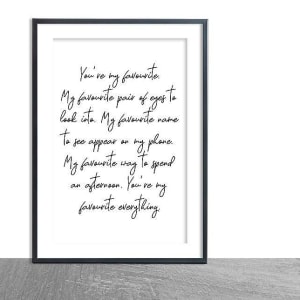 You're my favourite.
My favourite pair of eyes to
look into. My favourite name
to see appear on my phone.
My favourite way to spend
an afternoon. You're my
favourite everything.